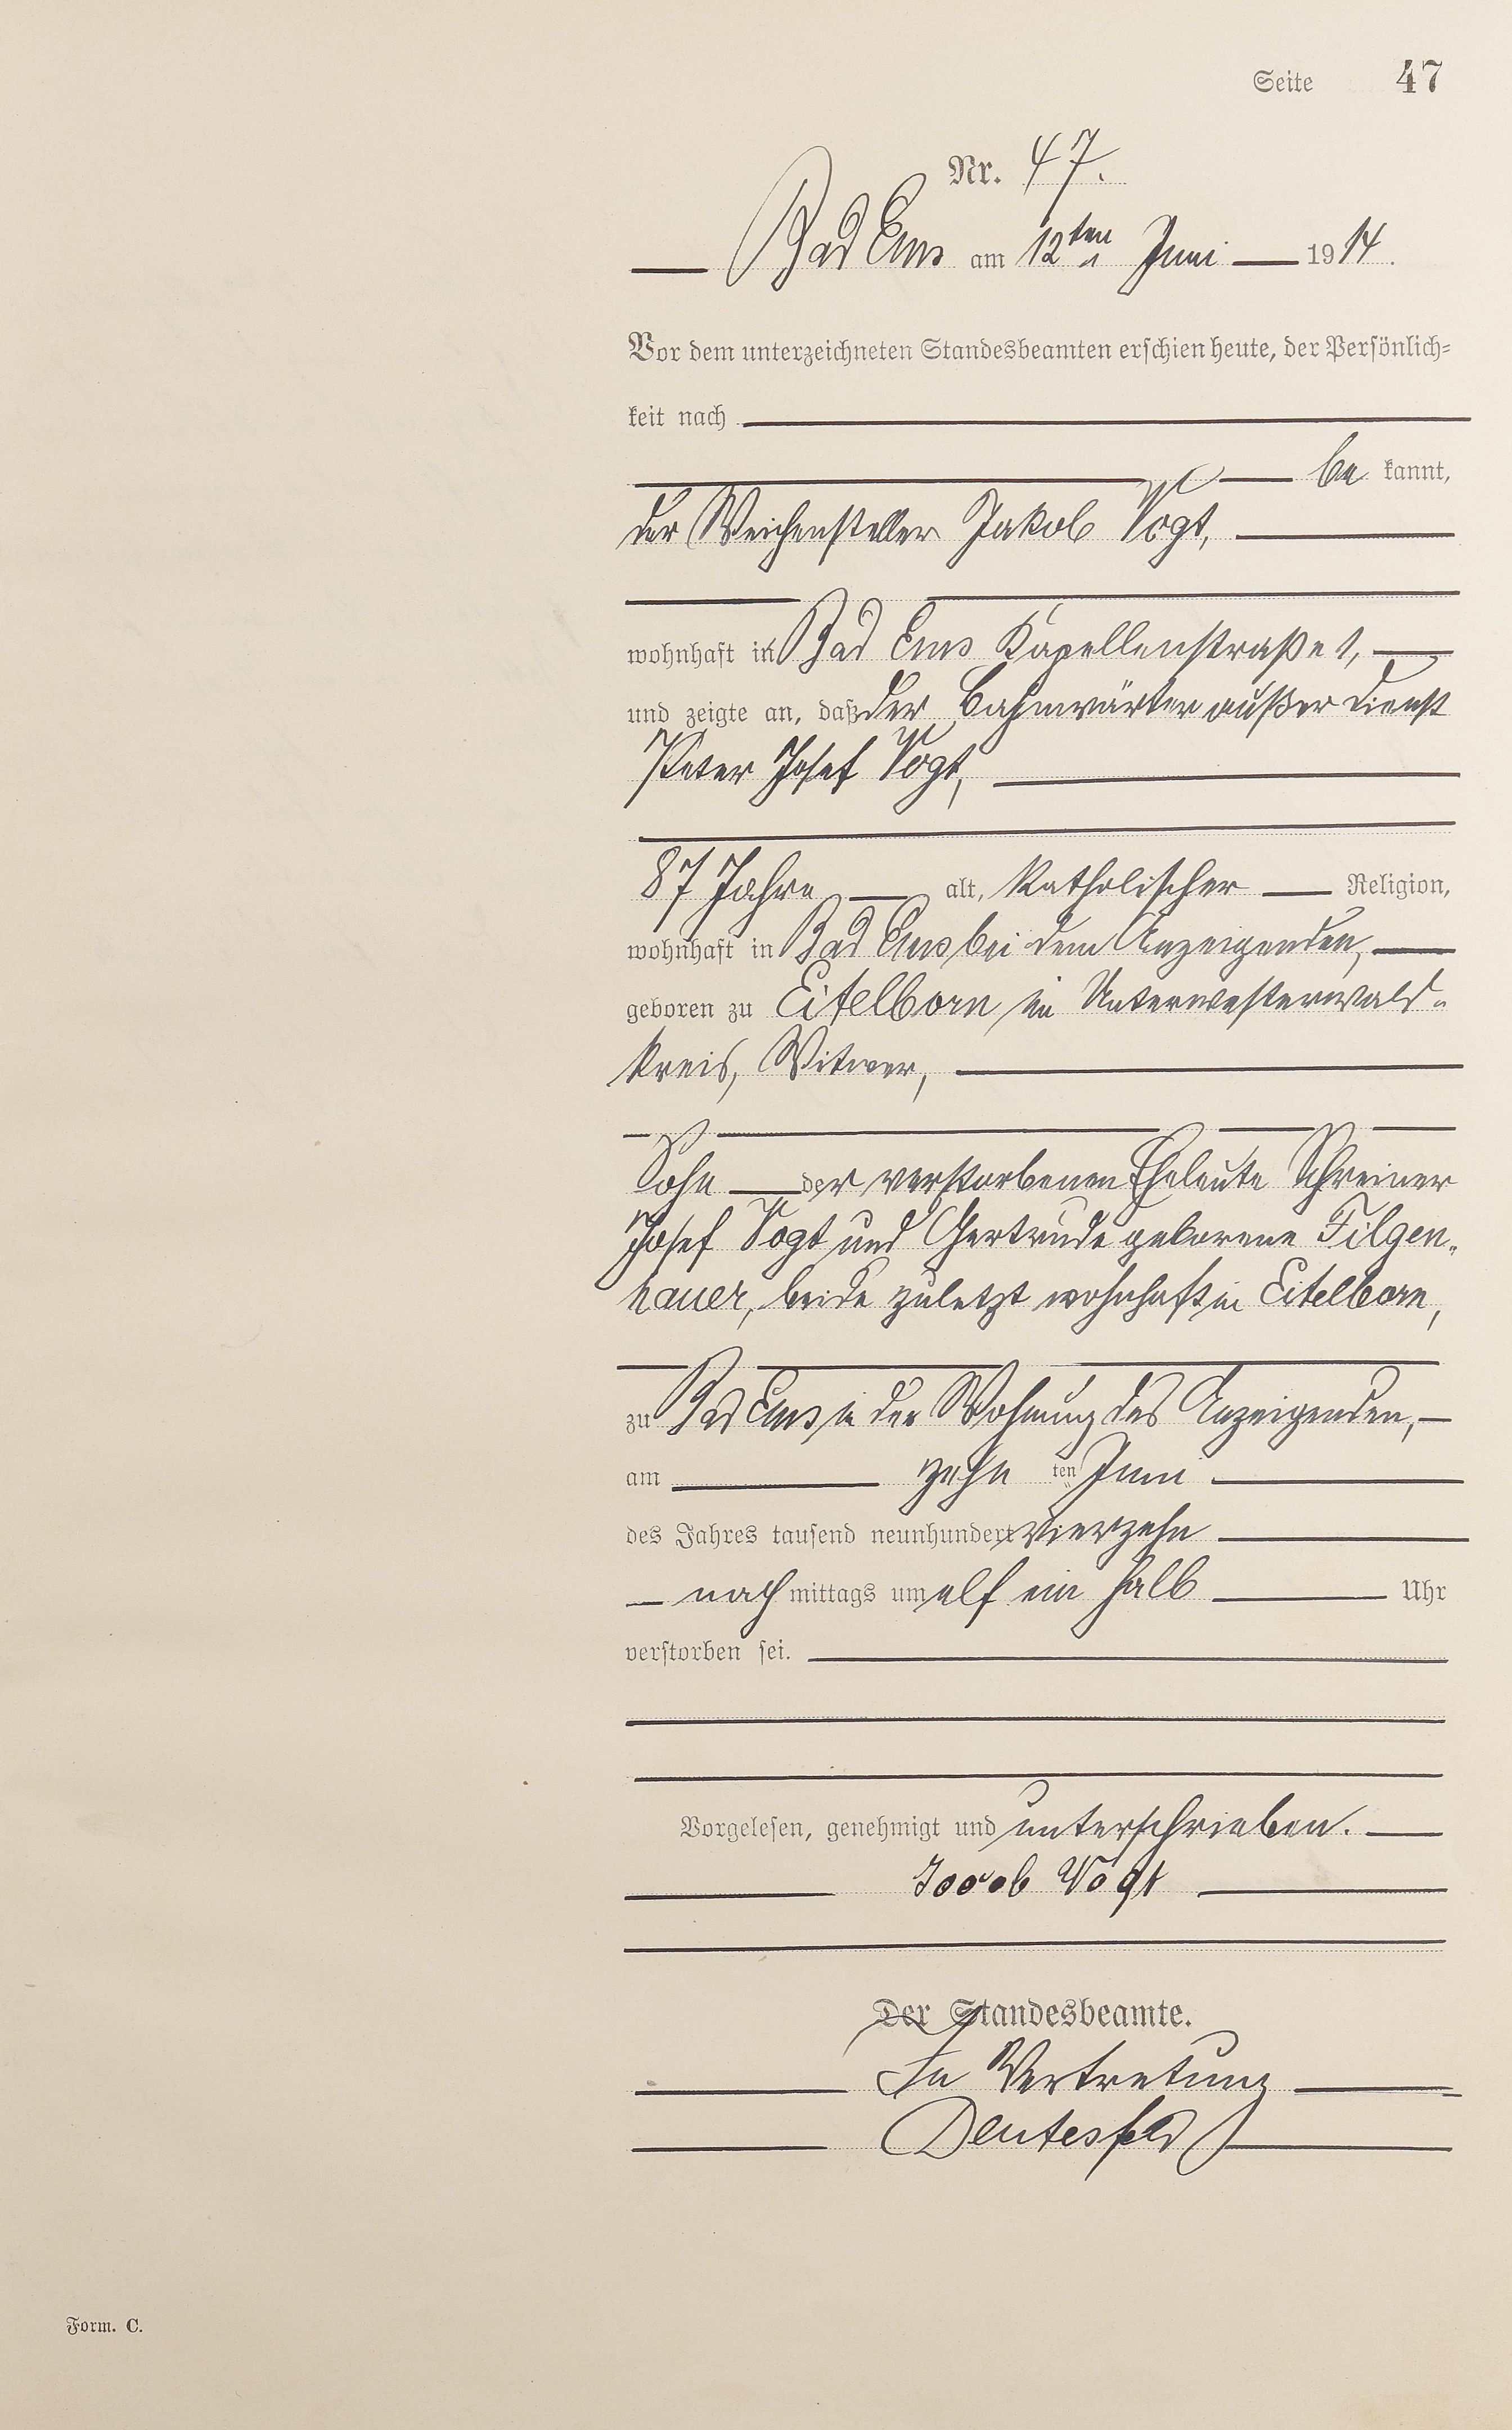 Seite 47
Nr. 47.
Bad Ems am 12ten Juni 1914.
Vor dem unterzeichneten Standesbeamten erschien heute, der Persönlich-
keit nach
be kannt,
der Weichensteller Jakob Vogt,
wohnhaft in Bad Ems Kapellenstraße 1,
und zeigte an, daß der Bahnwärter außer Dienst
Peter Josef Vogt,
87 Jahre alt, katholischer Religion,
wohnhaft in Bad Ems bei dem Anzeigenden,
geboren zu Eitelborn im Unterwesterwald-
kreis, Witwer,
Sohn der verstorbenen Eheleute Schreiner
Josef Vogt und Gertrude geborene Filgen-
hauer, beide zuletzt wohnhaft in Eitelborn,
zu Bad Ems in der Wohnung des Anzeigenden,
am zehn ten Juni
des Jahres tausend neunhundert vierzehn
nach mittags um elf ein halb Uhr
verstorben sei.
Vorgelesen, genehmigt und unterschrieben.
Jacob Vogt
Der Standesbeamte.
In Vertretung
Deutesfeld
Form. C.